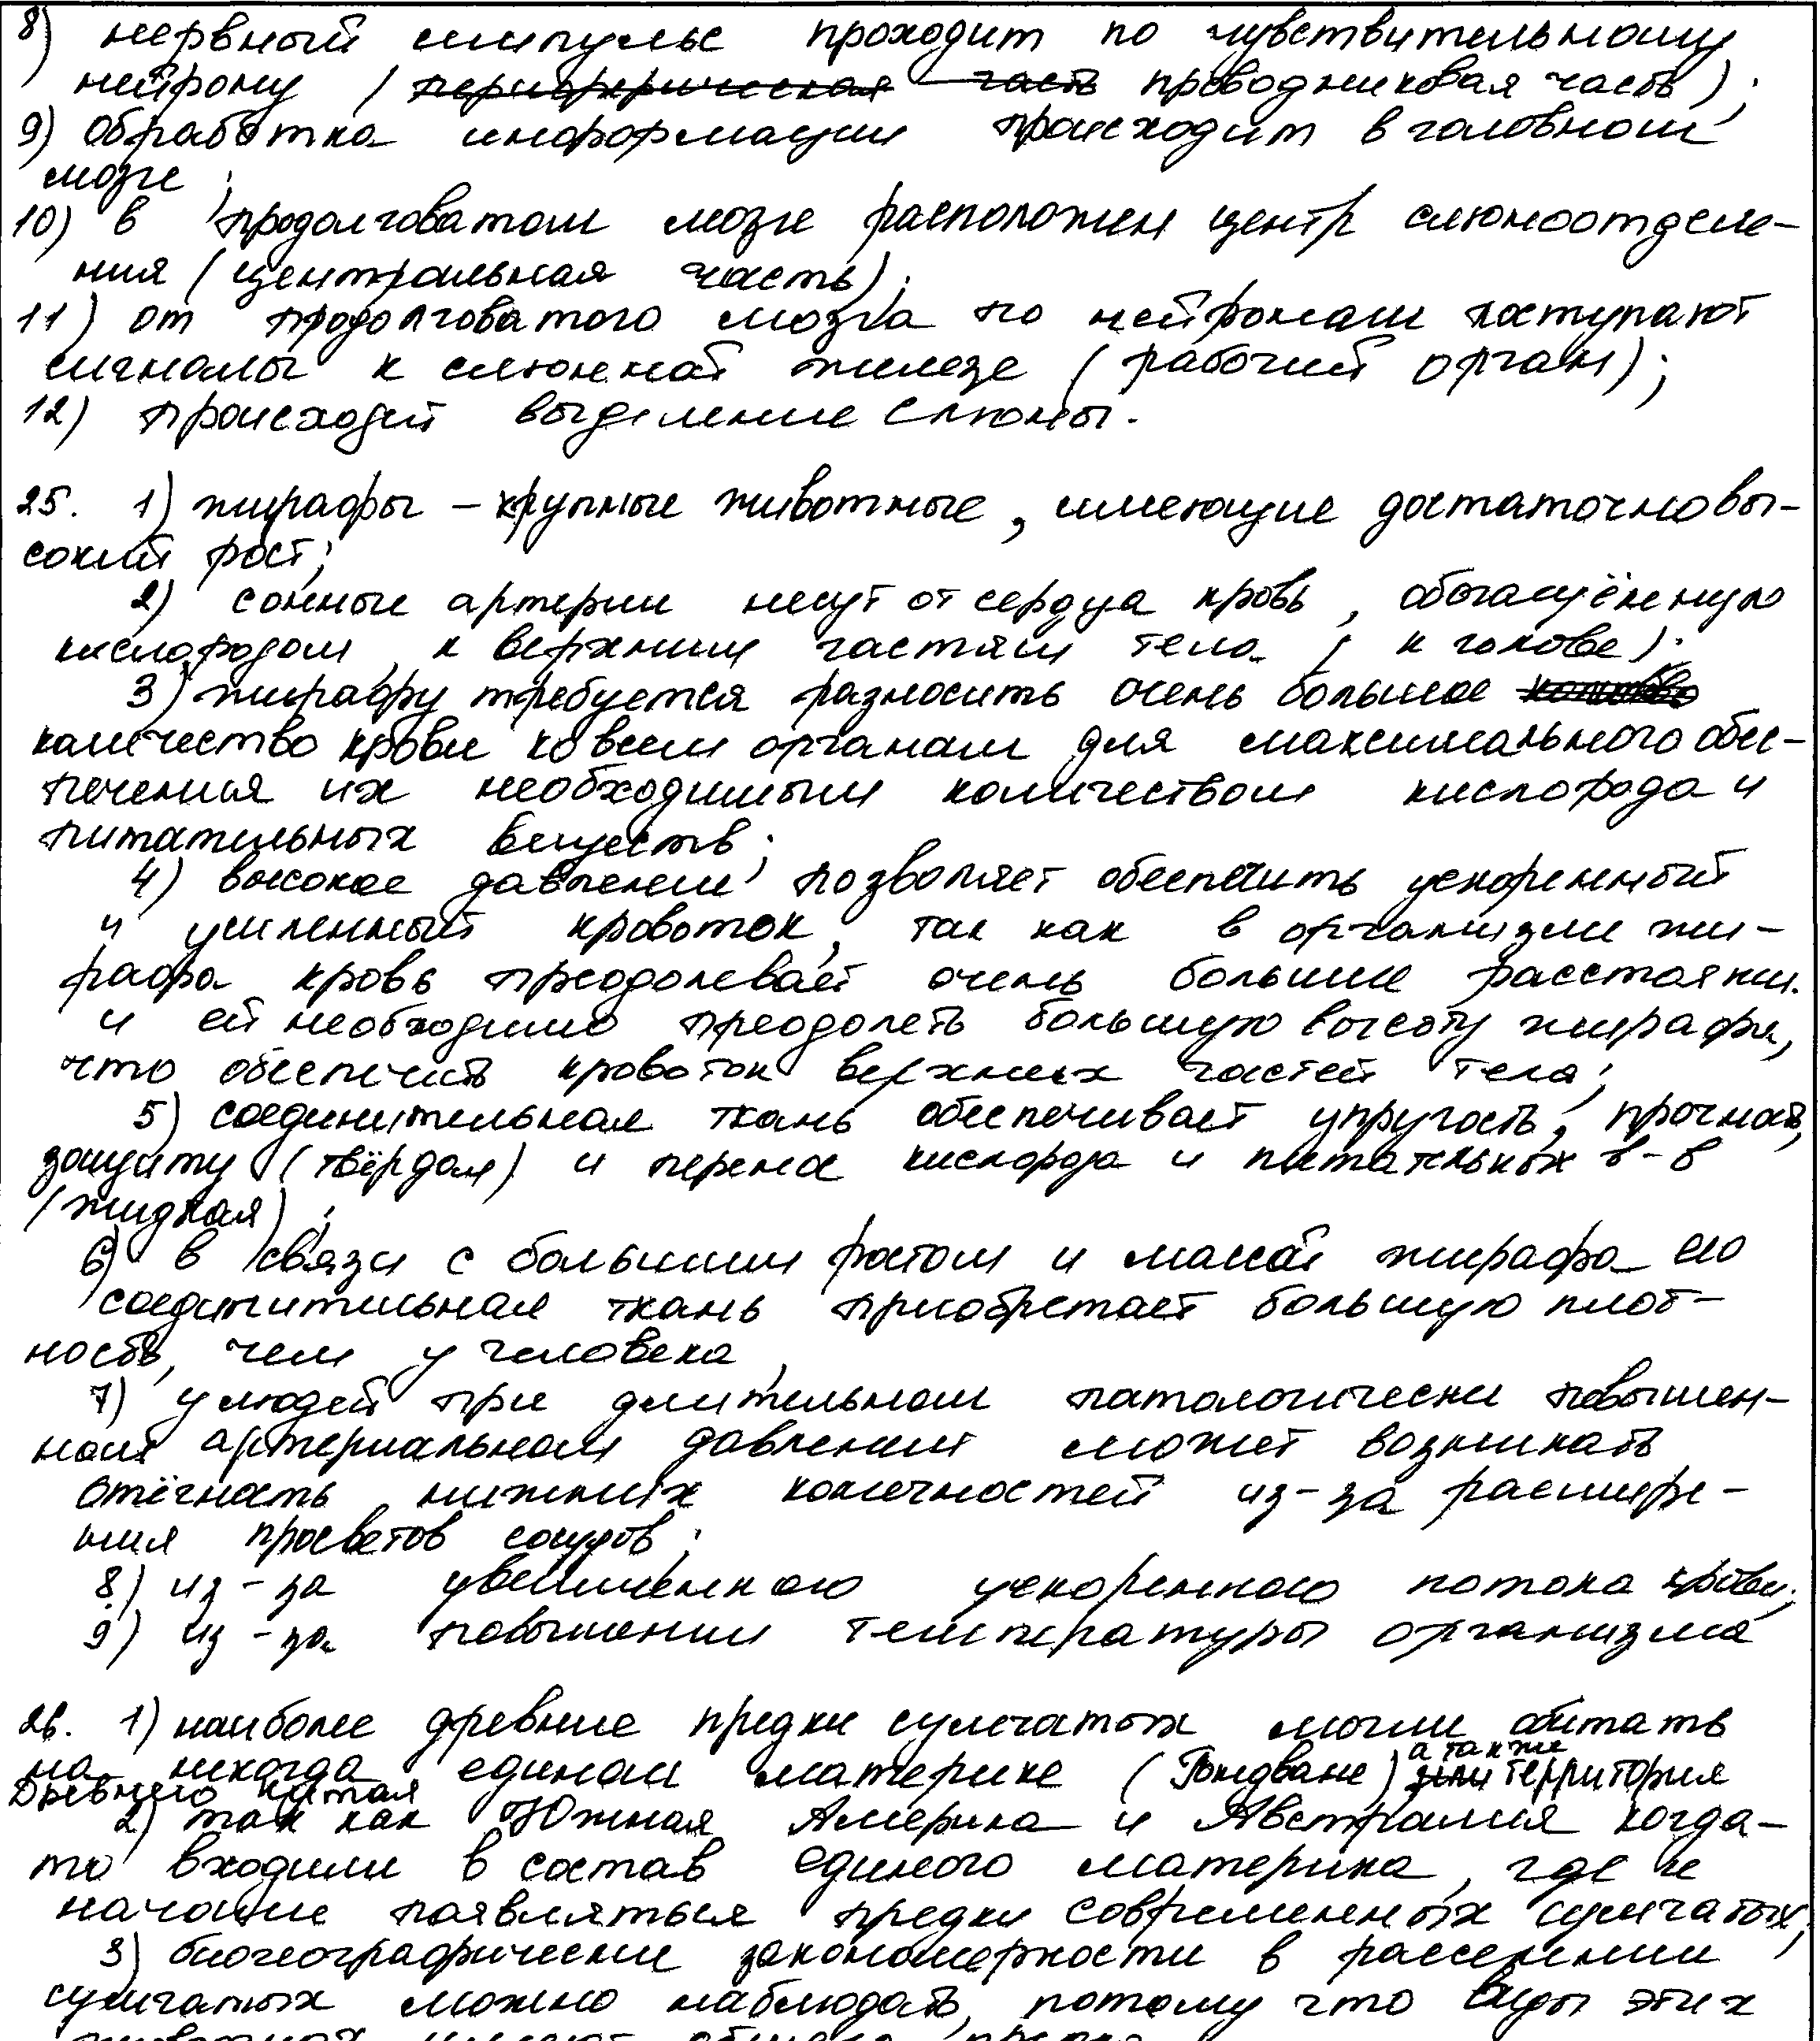 8) нервный импульс проходит по чувствительному
нейрону (периферическая часть проводниковая часть);
9) обработка информации происходит в головном
мозге;
10) в продолговатом мозге расположен центр слюноотделе-
ния (центральная часть);
11) от продолговатого мозга по нейронам поступают
сигналы к слюнной железе (рабочий орган);
12) происходит выделение слюны.
25. 1) жирафы – крупные животные, имеющие достаточно вы-
сокий рост;
2) сонные артерии несут от сердца кровь, обогащённую
кислородом, к верхним частям тела (к голове);
3) жирафу требуется разносить очень большое
количество крови ко всем органам для максимального обес-
печения их необходимым количеством кислорода и
питательных веществ;
4) высокое давление позволяет обеспечить ускоренный
и усиленный кровоток, так как в организме жи-
рафа кровь преодолевает очень большие расстояни.
и ей необходимо преодолеть большую высоту жирафа,
что обеспечить кровоток верхних частей тела;
5) соединительная ткань обеспечивает упругость, прочность,
защиту (твёрдая) и перенос кислорода и питательных в-в
(жидкая);
6) в связи с большим ростом и массой жирафа его
соединительная ткань приобретает большую плот-
ность, чем у человека,
7) у людей при длительном патологически повышен-
ном артериальном давлении может возникать
отёчность нижних конечностей из-за расшире-
ния просветов сосудов;
8) из-за увеличенного ускоренного потока крови;
9) из-за повышении температуры организма
26. 1) наиболее древние предки сумчатых могли обитать
на некогда едином материке (Гондване) а также территория
Древнего Китая
2) так как Южная Америка и Австралия когда-
то входили в состав единого материка, где и
начали появляться предки современных сумчатых,
3) биогеографически закономерности в расселении
сумчатых можно наблюдать, потому что виды этих